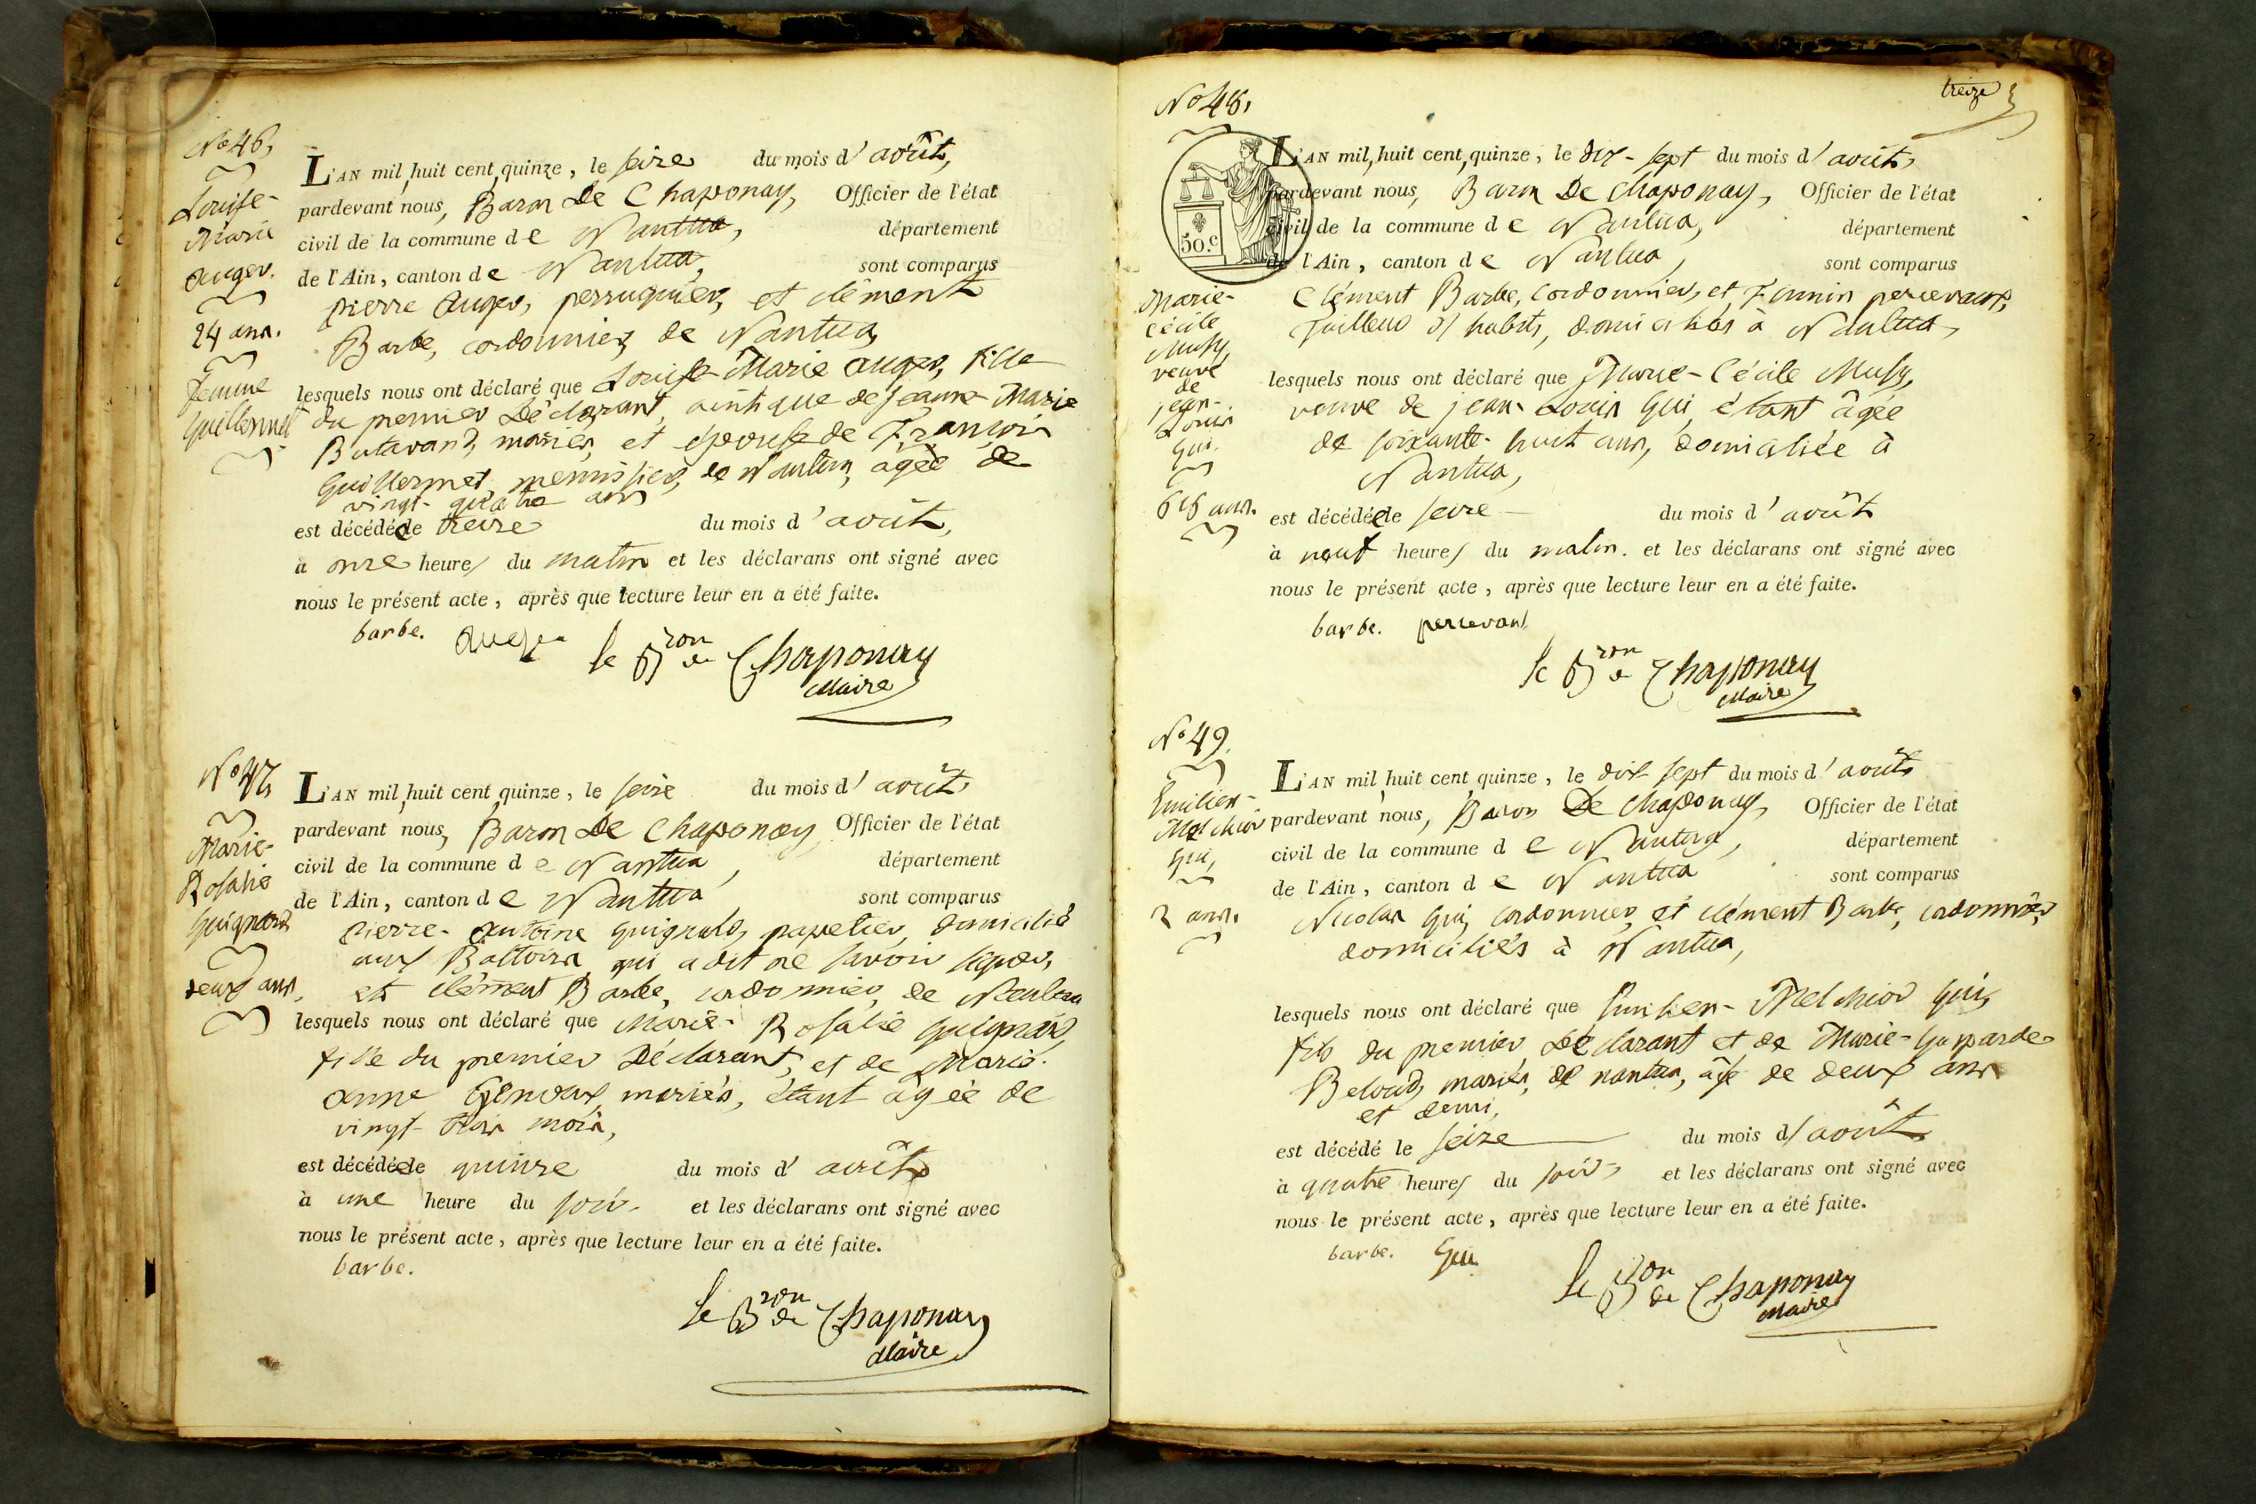 No 46,
Louise-
Marie
Auger.
24 ans.
femme
Guillermet
L'AN mil, huit cent, quinze, le seize du mois d'août,
pardevant nous, Baron De Chaponay, Officier de l'état
civil de la commune de Nantua, département
de l'Ain, canton de Nantua, sont comparus
pierre Auger, perruquier, et clément
Barbe, cordonnier, de Nantua,
lesquels nous ont déclaré que Louise Marie Auger, fille
du premier Déclarant, ainsi que de jeanne-Marie
Butavand, mariés, et épouse de François
Guillermet, menuisier, de Nantua, agée de
vingt-quatre ans
est décédée le treize du mois d'août,
à onze heures du matin et les déclarans ont signé avec
nous le présent acte, après que lecture leur en a été faite.
barbe. Auger
le Bron de Chaponay
Maire
No 47,
Marie-
Rosalie
Guignard
deux ans,
L'AN mil, huit cent, quinze, le seize du mois d'août
pardevant nous, Baron De Chaponay, Officier de l'état
civil de la commune de Nantua, département
de l'Ain, canton de Nantua sont comparus
pierre-Antoine Guignard, papetier, domicilié
aux Battoirs, qui a dit ne savoir signer,
et clément Barbe, cordonnier, de Nantua
lesquels nous ont déclaré que Marie-Rosalie Guignard,
fille du premier Déclarant, et de Marie-
Anne mariés, étant âgée de
vingt-trois mois,
est décédée le quinze du mois d'août
à une heure du soir. et les déclarans ont signé avec
nous le présent acte, après que lecture leur en a été faite.
barbe.
le Bron de Chaponay
Maire
treize
No 48,
50.c
Marie-
Cécile
Musy,
veuve
de
jean-
Louis
Gui.
68 ans.
L'AN mil, huit cent, quinze, le dix-sept du mois d'août
pardevant nous, Baron De Chaponay, Officier de l'état
civil de la commune de Nantua, département
de l'Ain, canton de Nantua, sont comparus
Clément Barbe, cordonnier, et Firmin percevaux,
Tailleur d'habits, domiciliés à Nantua,
lesquels nous ont déclaré que Marie-Cécile Musy,
veuve de jean-Louis Gui, étant âgée
de soixante-huit ans, domiciliée à
Nantua,
est décédée le seize du mois d'août
à neuf heures du matin. et les déclarans ont signé avec
nous le présent acte, après que lecture leur en a été faite.
barbe. percevaux
le Bron de Chaponay
Maire
No 49.
Emilien-
Melchior
Gui,
2 ans.
L'AN mil, huit cent, quinze, le dix sept du mois d'août
pardevant nous, Baron De Chaponay, Officier de l'état
civil de la commune de Nantua, département
de l'Ain, canton de Nantua sont comparus
Nicolas Gui, cordonnier, et clément Barbe, cordonnier,
domiciliés à Nantua,
lesquels nous ont déclaré que Emilien-Melchior Gui,
fils du premier Déclarant et de Marie-Gasparde
Beloud, mariés, de nantua, âgé de deux ans
et demi,
est décédé le seize du mois d'août
à quatre heures du soir, et les déclarans ont signé avec
nous le présent acte, après que lecture leur en a été faite.
barbe. Gui
le Bron de Chaponay
Maire